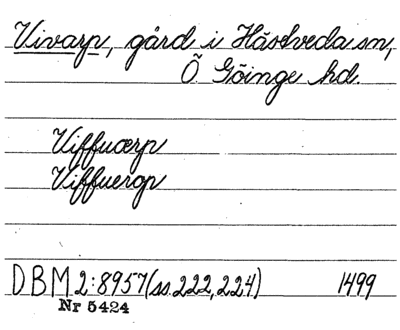 Vivarp, gård i Hästveda sn,
Ö Göinge hd.
Viffuærp
Viffuerop
DBM 2:8957 (ss. 222, 224) 1499
Nr 5424